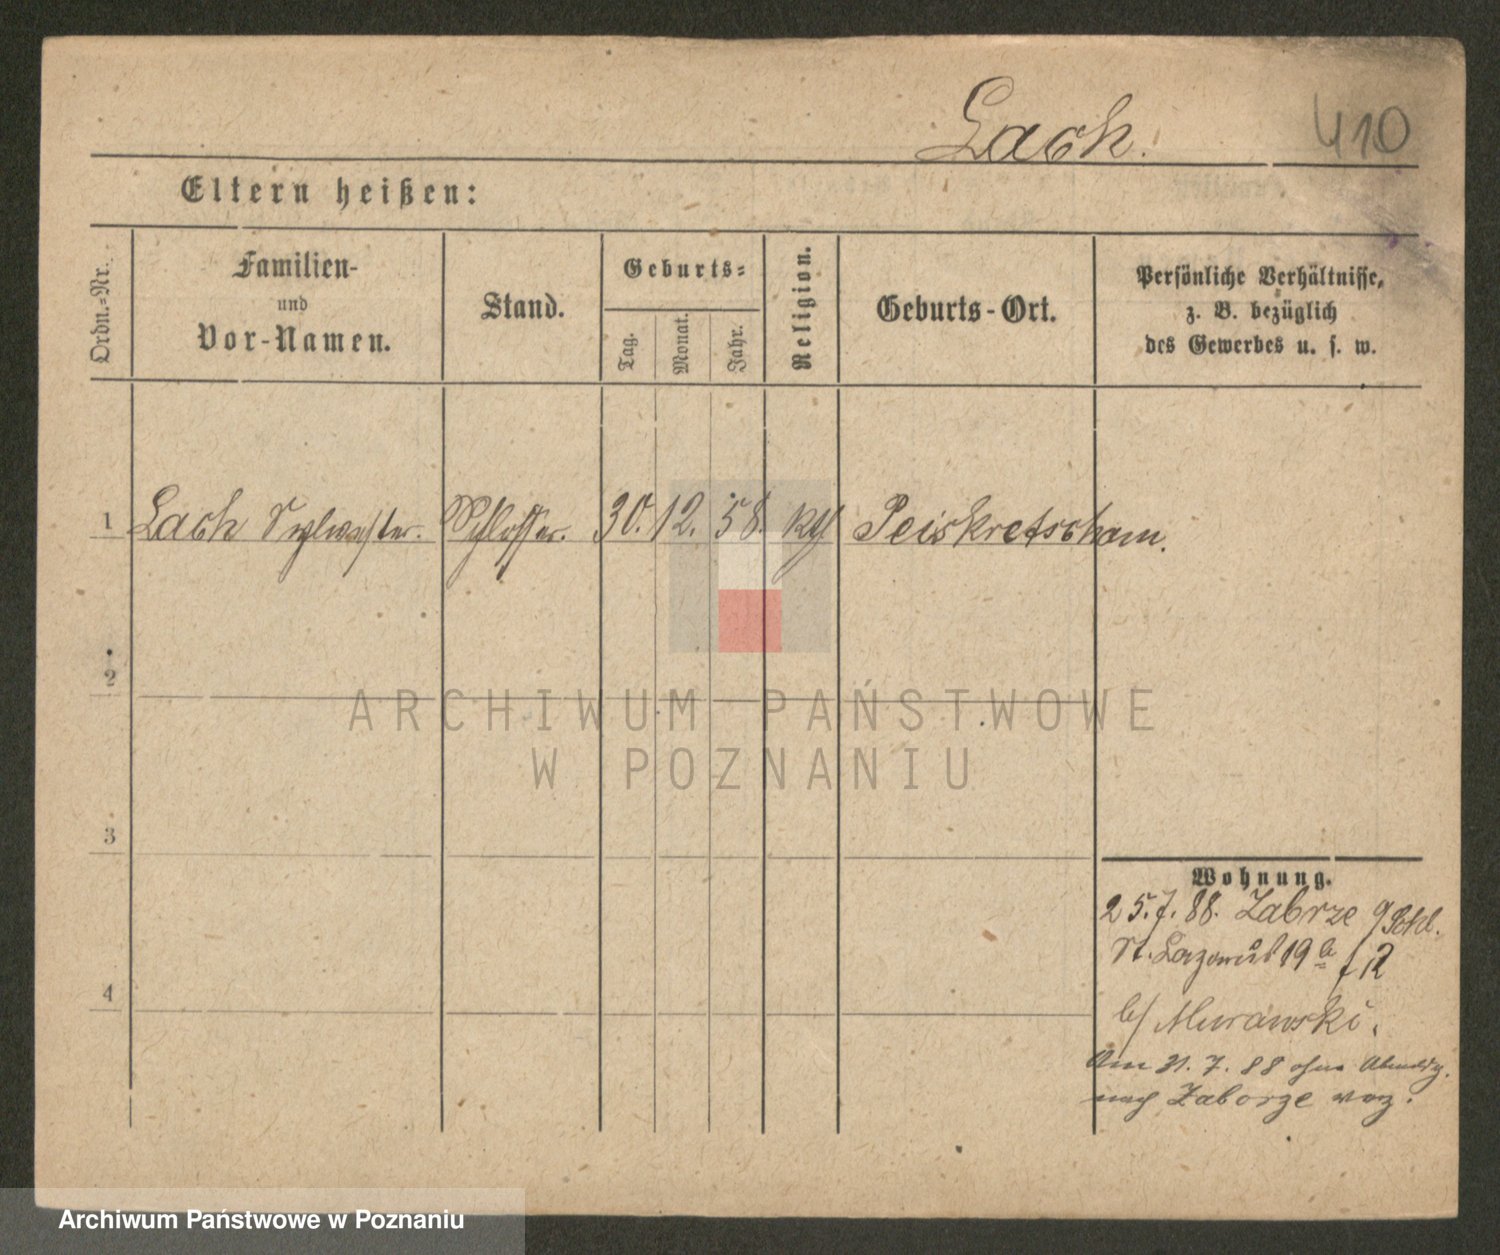 Lach.
410
Eltern heißen:
Ordn.-Nr.
Familien-
und
Vor-Namen.
Stand.
Geburts-
Tag.
Monat.
Jahr.
Religion.
Geburts-Ort.
Persönliche Verhältnisse,
z. B. bezüglich
des Gewerbes u. s. w.
1 Lach Sylwester. Schlosser. 30. 12. 58. kth Peiskretscham.
2
3
4
Wohnung.
25.7.88. Zabrze
St. Lazarus 19a f 12
b/ Murawski.
Am 31. 7. 88 ohne Abmeldg.
nach Zaborze verz.
ARCHIWUM PAŃSTWOWE
W POZNANIU
Archiwum Państwowe w Poznaniu